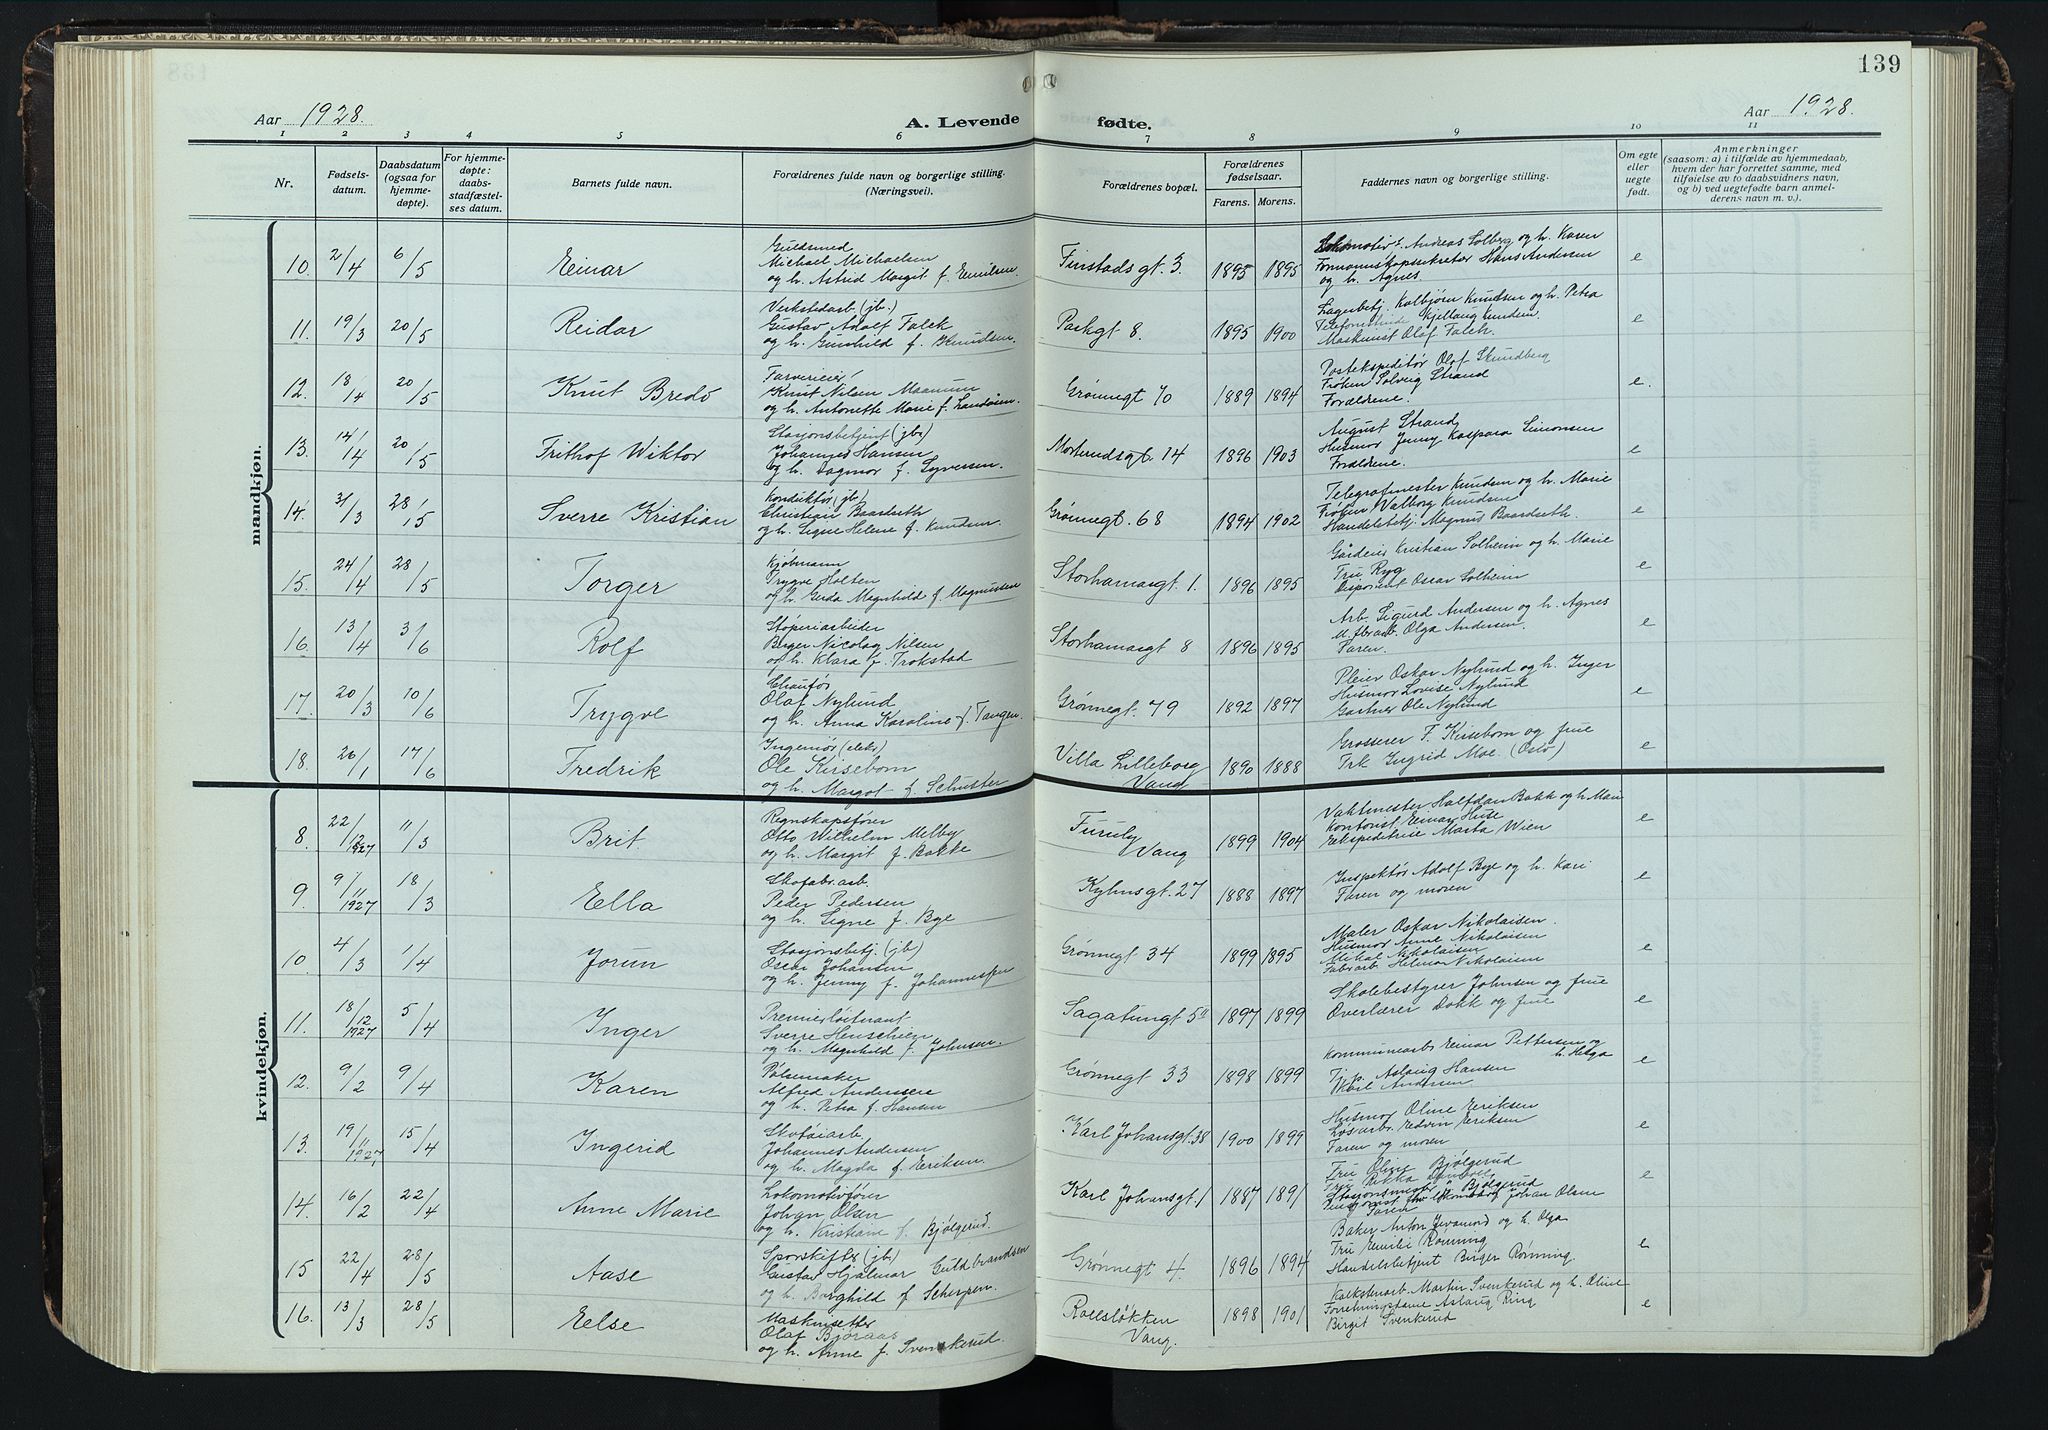 139
Aar 1928.
A. Levende fødte.
Aar 1928.
1 2 3 4 5 6 7 8 9 10 11
Nr.
Fødsels-
datum.
Daabsdatum
(ogsaa for
hjemme-
døpte).
For hjemme-
døpte:
daabs-
stadfæstel-
ses datum.
Barnets fulde navn.
Forældrenes fulde navn og borgerlige stilling.
(Næringsvei).
Forældrenes bopæl.
Forældrenes
fødselsaar.
Farens. Morens.
Faddernes navn og borgerlige stilling.
Om egte
eller
uegte
født.
Anmerkninger
(saasom: a) i tilfælde av hjemmedaab,
hvem der har forrettet samme, med
tilføielse av to daabsvidners navn,
og b) ved uegtefødte barn anmel-
derens navn m. v.).
mandkjøn.
10. 2/4 6/5 Einar
Guldsmed
Michael Michaelsen
og h. Astrid Margit f. Emilsen
Finstads gt. 3. 1895 1895
Lokomotivf. Andreas Solberg og h. Karen
Formannskapssekretær Hans Andersen
og h. Agnes.
e
11. 19/3 20/5 Reidar
Verkstedarb. (jb.)
Gustav Adolf Falck
og h. Gunhild f. Knudsen.
Parkgt 8. 1895 1900
Lagerbetj. Kolbjørn Knudsen og h. Petra
Kjellaug Knudsen.
Maskinist Olaf Falck.
e
12. 18/4 20/5 Knut Bredo
Farverieier
Knut Nilsen Maanum
og h. Antonette Marie f. Landåsen.
Grønnegt 70 1889 1894
Postekspeditør Olaf Strundberg
Frøken Solveig Strand
Forældrene.
e.
13. 14/4 20/5 Frithof Wiktor
Stasjonsbetjent (jb.)
Johannes Hansen
og h. Dagmar f. Syversen.
Morterudsgt. 14 1896 1903
August Strand
Husmor Jenny Kaspara Simonsen
Forældrene.
e
14. 31/3 28/5 Sverre Kristian
Konduktør (jb)
Christian Baardseth
og h. Signe Helene f. Knudsen.
Grønnegt. 68 1894 1902
Telegrafmester Knudsen og h. Marie
Frøken Valborg Knudsen
Handelsbetj. Magnus Baardseth.
e
15. 24/4 28/5 Torger
Kjøbmann
Trygve Holten
og h. Gerda Magnhild f. Magnussen
Storhamargt. 1. 1896 1895
Gårdeier Kristian Solheim og h. Marie
Fru Ryg
Disponent Oscar Solheim
e
16. 13/4 3/6 Rolf
Støperiarbeider
Birger Nicolay Nilsen
og h. Klara f. Trøkstad
Storhamargt 8 1896 1895
Arb. Sigurd Andersen og h. Agnes
Olga Andersen.
Faren.
e
17. 20/3 10/6 Trygve
Chaufør
Olaf Nylund
og h. Anna Karoline f. Tangen.
Grønnegt. 79 1892 1897
Pleier Oskar Nylund og h. Inger
Husmor Lovise Nylund
Gartner Ole Nylund
e
18. 26/1 17/6 Fredrik
Ingeniør (elekt)
Ole Kirsebom
og h. Margot f. Schuster
Villa Lilleborg
Vang 1890 1888
Grosserer F. Kirsebom og frue
Frk Ingrid Moe. (Oslo)
e
kvindekjøn.
8. 22/12 1927 11/3 Brit
Regnskapsfører
Otto Wilhelm Melby
og h. Margit f. Bakke
Furuly
Vang 1899 1904
Vaktmester Halfdan Bakk og h. Mari
Kontorist Einar Huse
Ekspeditrise Marta Wien
e
9. 9/11 1927 18/3 Ella
Skofabr.arb.
Peder Pedersen
og h. Signe f. Bye
Kyhnsgt. 27 1888 1897
Inspektør Adolf Bye og h. Kari
Faren og moren
e
10. 4/3 1/4 Jorun
Stasjonsbetj. (jb)
Oscar Johansen
og h. Jenny f. Johannessen
Grønnegt 34 1899 1895
Maler Oskar Nikolaisen.
Husmor Anne Nikolaisen
Mikal Nikolaisen
Fabr.arb. Helmar Nikolaisen
e
11. 18/12 1927 5/4 Inger
Premierløitnant
Sverre Henschien
og h. Magnhild f. Johnsen.
Sagatungt 5 II 1897 1899
Skolebestyrer Johnsen og frue
Overlærer Dokk og frue
e
12. 9/2 9/4 Karen
Pølsemaker
Alfred Andersen
og h. Petra f. Hansen
Grønnegt 33 1898 1899
Kommunearb. Einar Pettersen og
h. Helga
Aslaug Hansen
Karl Andersen
e
13. 19/11 1927 15/4 Ingerid
Skotøiarb.
Johannes Andersen
og h. Magda f. Eriksen.
Karl Johansgt. 38 1900 1899
Husmor Oline Eriksen
Løsarb. Edvin Eriksen
Faren og moren
e
14. 16/2 22/4 Anne Marie
Lokomotivfører
Johan Olsen
og h. Kristiane f. Bjølgerud.
Karl Johansgt. 1 1887 1891
Fru Oline Bjølgerud
Fru Rikka
Bjølgerud
Johan Olsen
Faren
e
15 22/4 28/5 Aase
Sporskifter (jb)
Gustav Hjalmar Guldbrandsen
og h. Borghild f. Scherpen.
Grønnegt 4. 1896 1894
Baker Anton Jevamord og h. Olga
Fru Emilie Rønning
Handelsbetjent Birger Rønning.
e
16. 13/3 28/5 Else
Maskinsetter
Olaf Bjøraas
og h. Anne f. Svenkerud.
Rollsløkken
Vang. 1898 1901
Kalkstenarb. Martin Svenkerud og h. Oline
Forretningsdame Aslaug Ring
Birgit Svenkerud
e